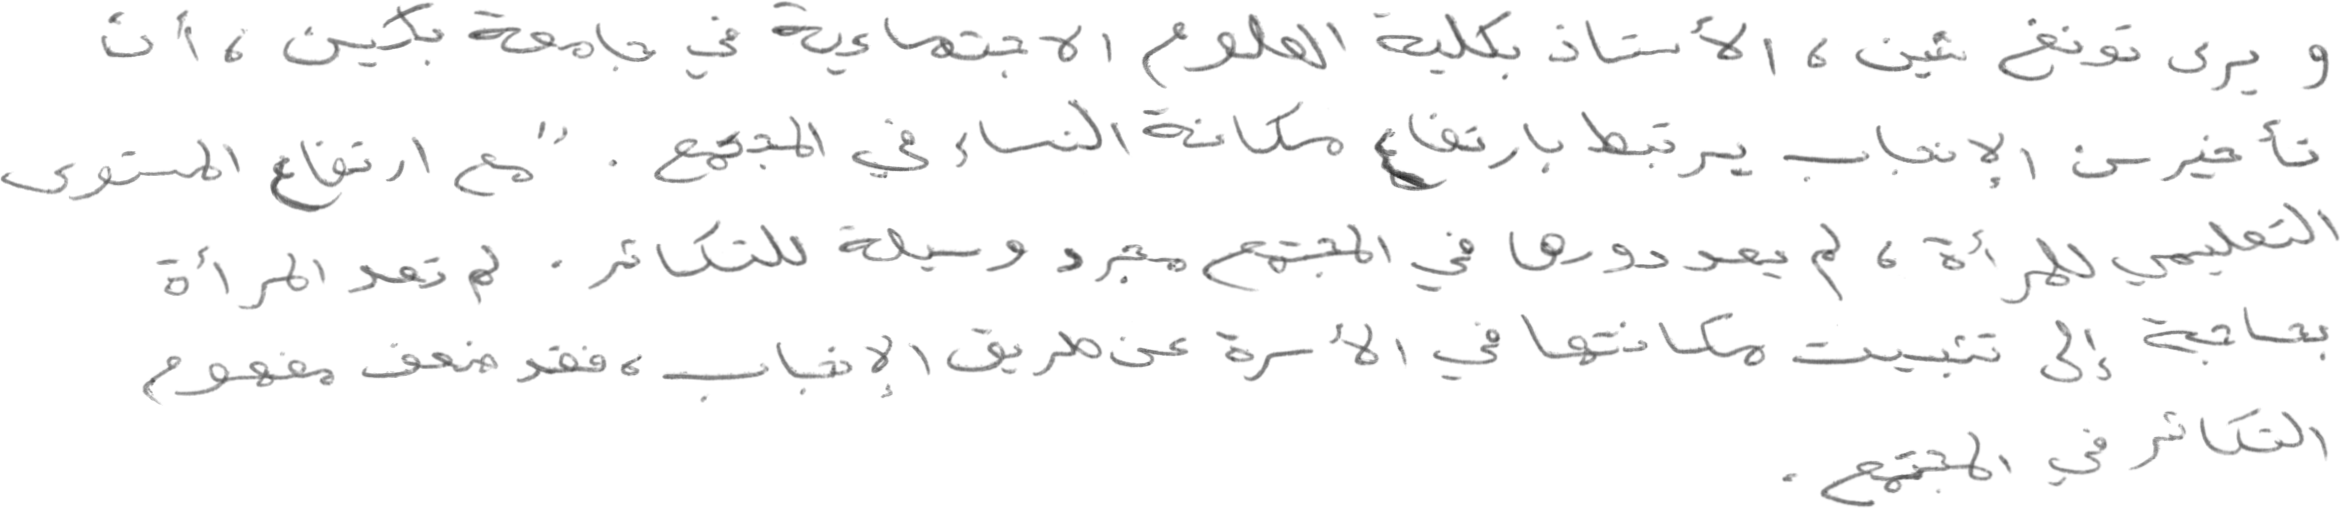 ويرى تونغ شين، الأستاذ بكلية العلوم الاجتماعية في جامعة بكين، أن
تأخير سن الإنجاب يرتبط بارتفاع مكانة النساء في المجتمع. "مع ارتفاع المستوى
التعليمي للمرأة، لم يعد دورها في المجتمع مجرد وسيلة للتكاثر. لم تعد المرأة
بحاجة إلى تثبيت مكانتها في الأسرة عن طريق الإنجاب، فقد ضعف مفهوم
التكاثر في المجتمع.